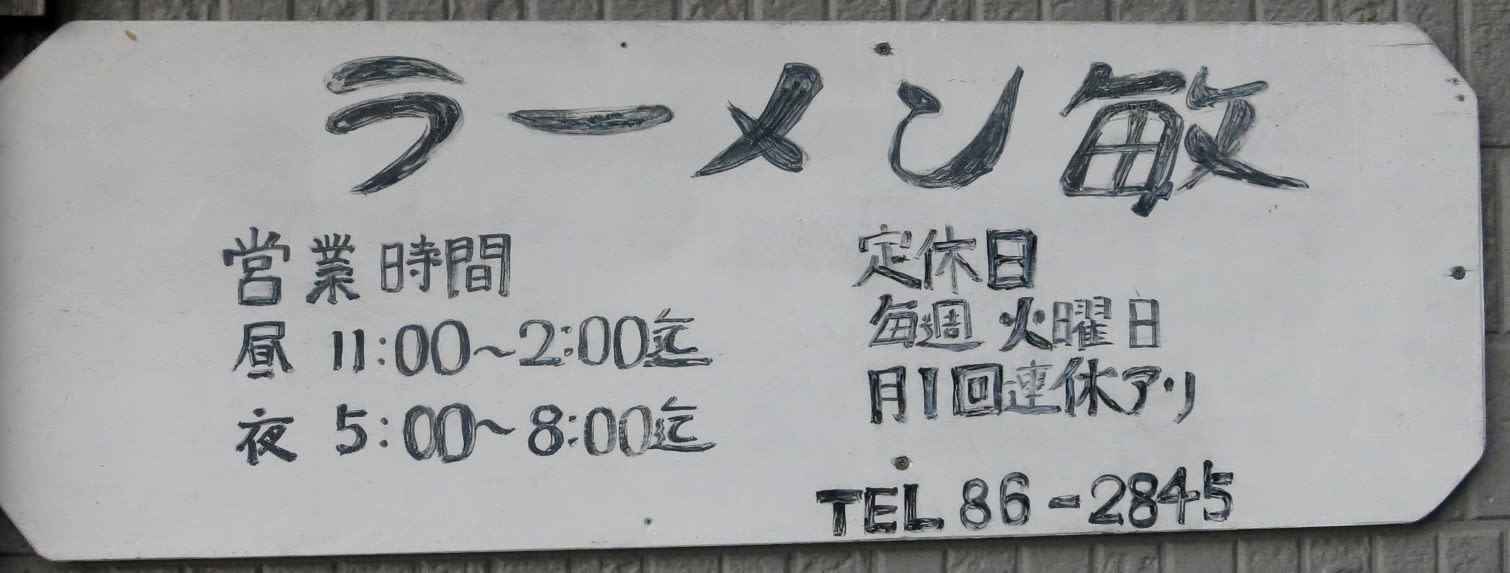 ラーメン敏
営業時間
昼 11:00~2:00迄
夜 5:00~8:00迄
定休日
毎週 火曜日
月1回連休アリ
TEL 86-2845